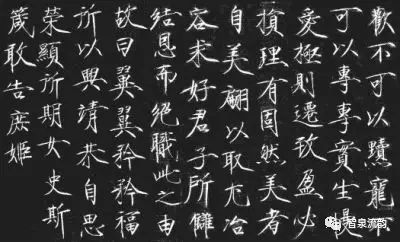 歡不可以黷寵不
可以專專實生慢
愛極則遷致盈必
損理有固然美者
自美翩以取尤冶
容求好君子所讎
結恩而絕職此之由
故曰翼翼矜矜福
所以興靖恭自思
榮顯所期女史斯
箴敢告庶姬
若泉流韵